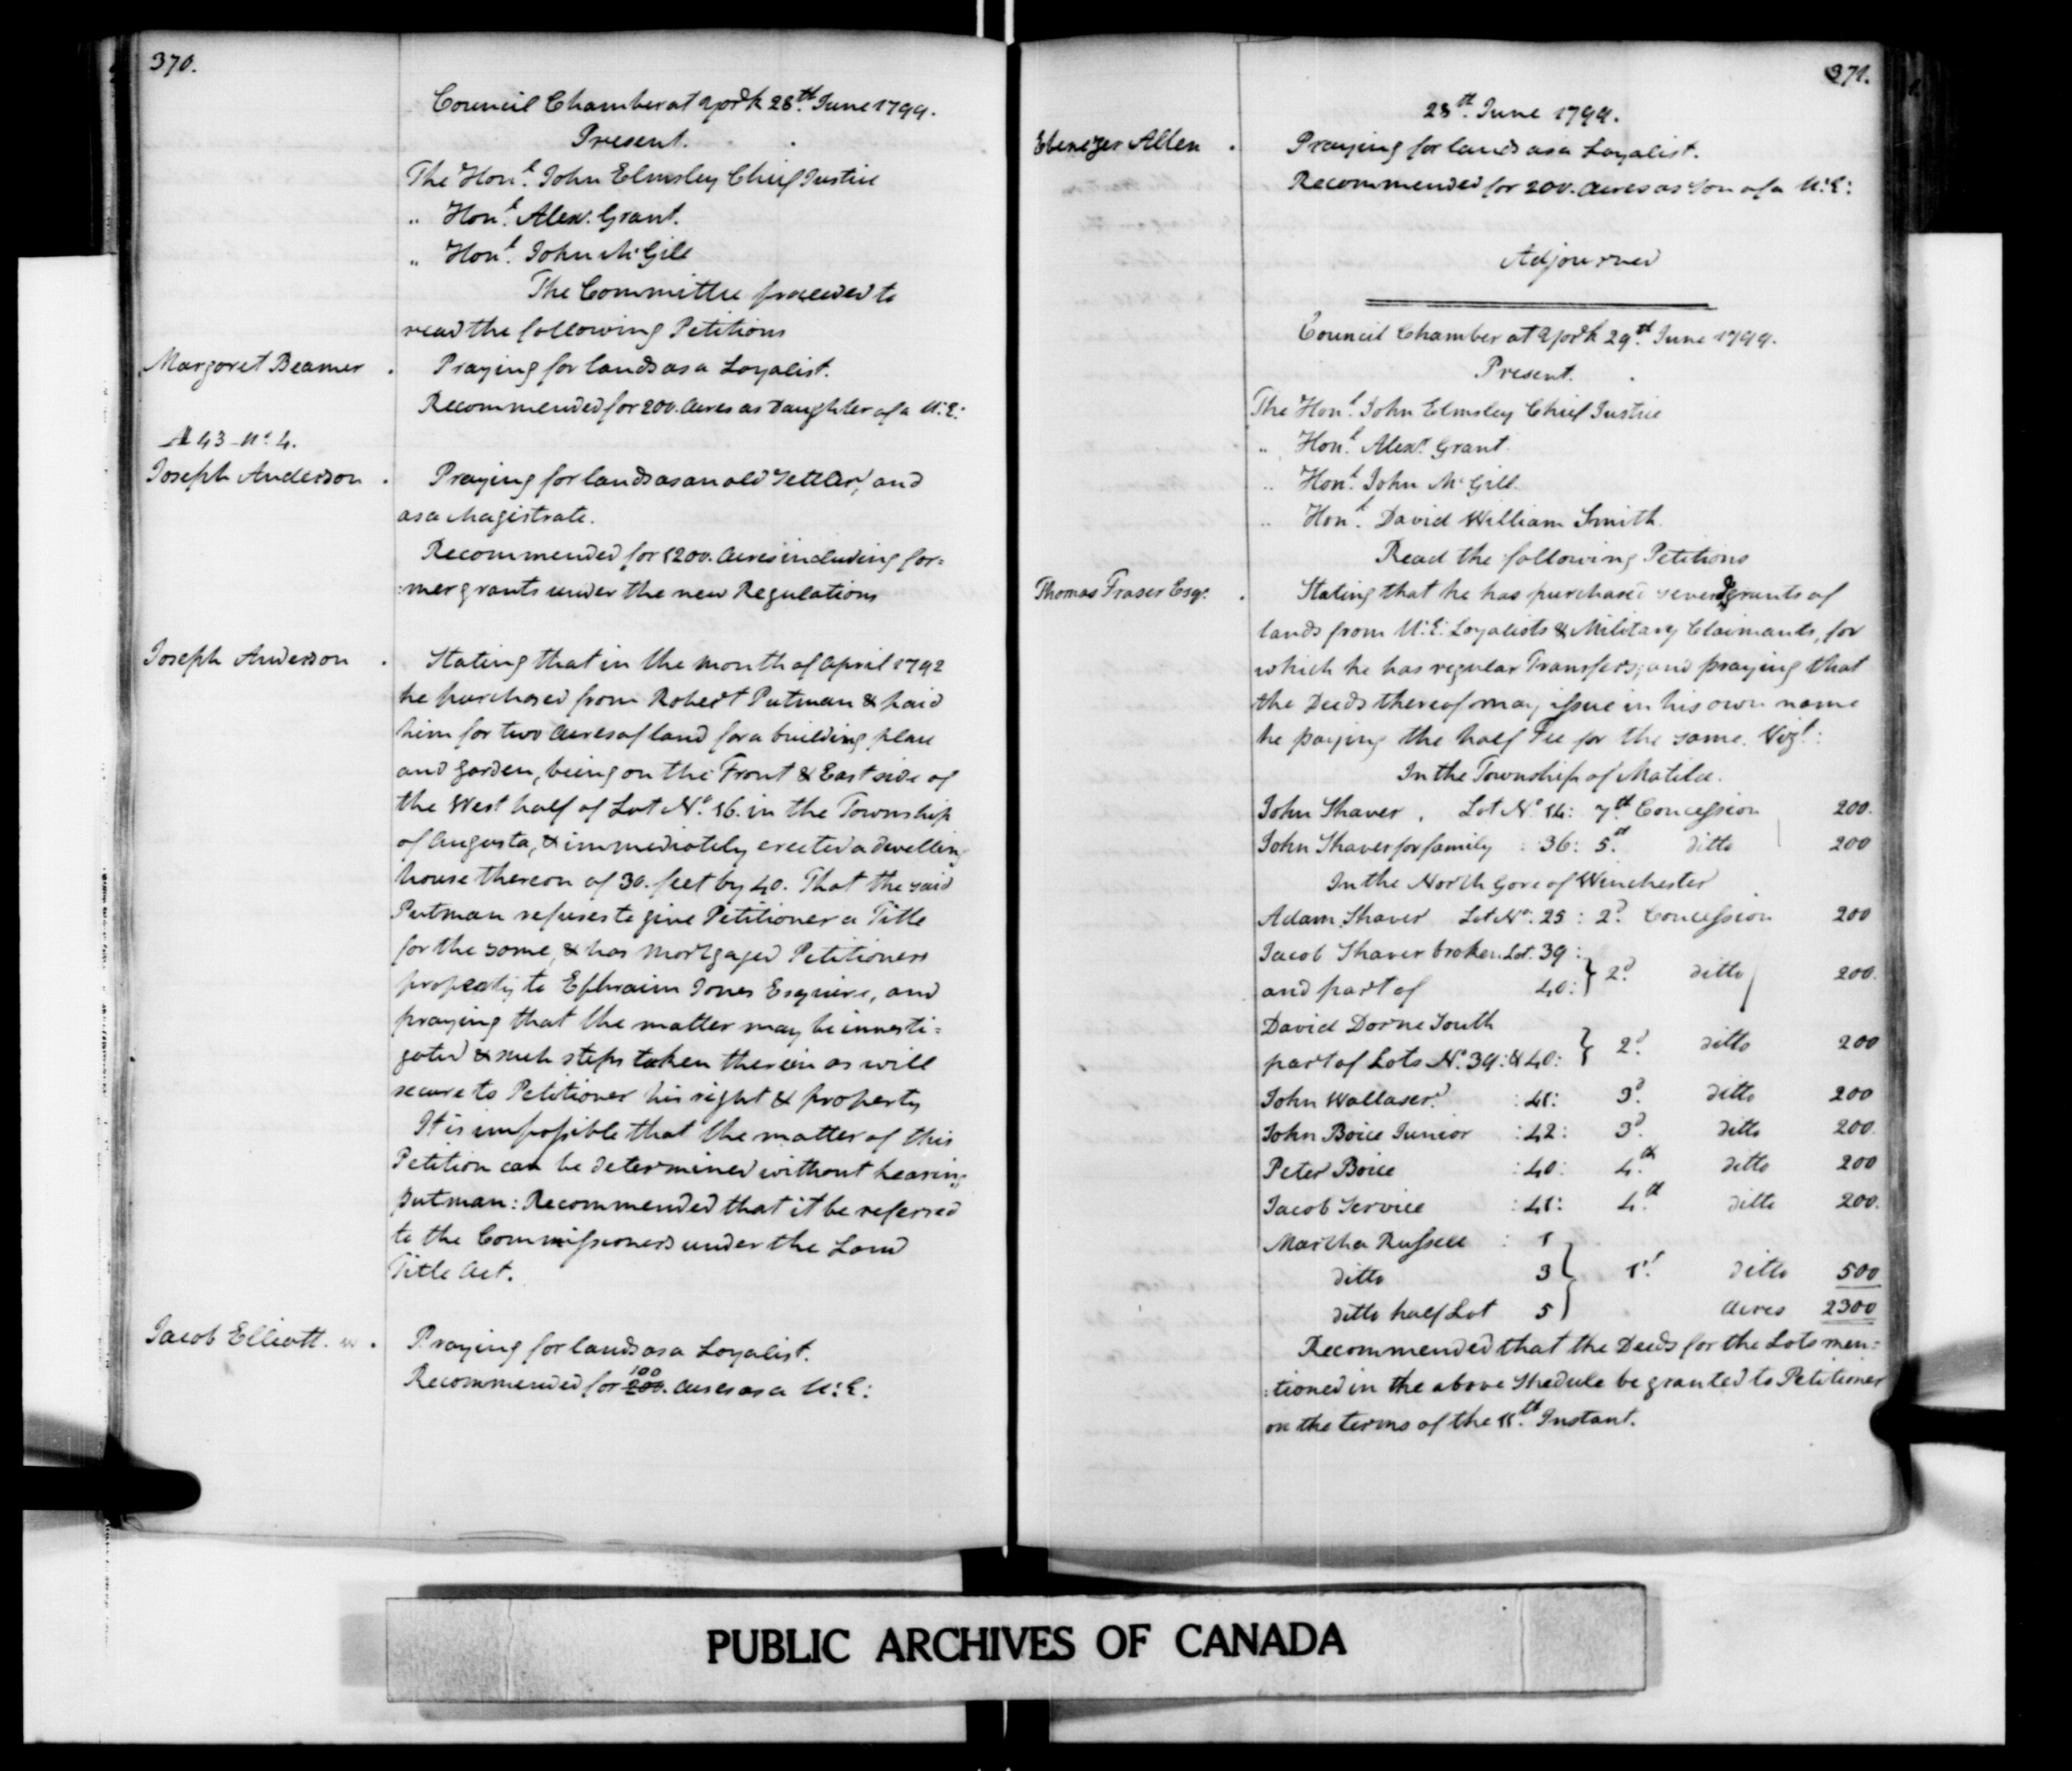 370.
Council Chamber at York 28th. June 1799.
Present.
The Honl. John Elmsley Chief Justice
" Honl. Alexr. Grant.
" Honl. John McGill
The Committee proceeded to
read the following Petitions
Margaret Beamer . Praying for lands as a Loyalist.
Recommended for 200. Acres as Daughter of a U:E:
A 43 - No. 4.
Joseph Anderson . Praying for lands as an old Settler, and
as a Magistrate.
Recommended for 1200. Acres including for=
:mer grants under the new Regulations
Joseph Anderson . Stating that in the month of April 1792
he purchased from Robert Putman & paid
him for two Acres of land for a building place
and Garden, being on the Front & East side of
the West half of Lot No. 16. in the Township
of Augusta, & immediately erected a dwelling
house thereon of 30. feet by 40. That the said
Putman refuses to give Petitioner a Title
for the same, & has Mortgaged Petitioners
property to Ephraim Jones Esquire, and
praying that the matter may be investi=
gated & such steps taken therein as will
secure to Petitioner his right & property
It is impossible that the matter of this
Petition can be determined without hearing
putman: Recommended that it be referred
to the Commissioners under the Land
Title Act.
Jacob Elliott. . Praying for lands as a Loyalist.
100
Recommended for 200. Acres as a U:E:
371.
28th. June 1799.
Ebenezer Allen . Praying for lands as a Loyalist.
Recommended for 200. Acres as Son of a U:E:
Adjourned
Council Chamber at York 29th. June 1799.
Present.
The Honl. John Elmsley Chief Justice
" Honl. Alexr. Grant.
" Honl. John McGill.
" Honl. David William Smith.
Read the following Petitions
Thomas Fraser Esqr. . Stating that he has purchased several grants of
lands from U:E: Loyalists & Military Claimants, for
which he has regular Transfers; and praying that
the Deeds thereof may issue in his own name
he paying the half Fee for the same. Vizt:
In the Township of Matilda.
John Shaver , Lot No. 14: 7th. Concession 200.
John Shaver for family : 36: 5th. ditto 200
In the North Gore of Winchester
Adam Shaver Lot No: 25 : 2d. Concession 200
Jacob Shaver broken Lot. 39 :
and part of 40: } 2d. ditto 200.
David Dorne South
part of Lots No. 39: & 40: } 2d. ditto 200
John Wallaser. :41: 3d. ditto 200
John Boice Junior :42: 3d. ditto 200.
Peter Boice :40: 4.th ditto 200
Jacob Service :41: 4.th ditto 200.
Martha Russell : 1
ditto 3 } 1st. ditto 500
ditto half Lot 5 Acres 2300
Recommended that the Deeds for the Lots men=
:tioned in the above Shedule be granted to Petitioner
on the terms of the 11th. Instant.
PUBLIC ARCHIVES OF CANADA